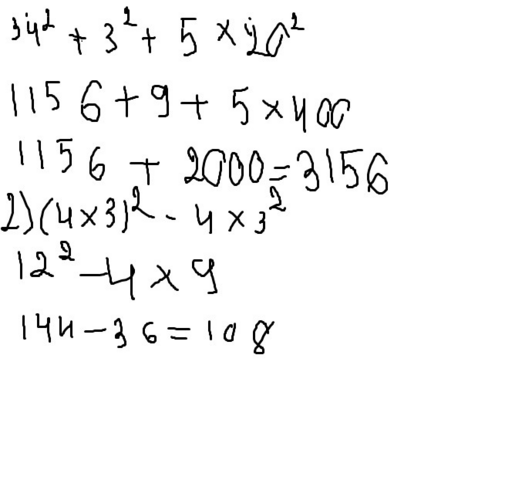 34² + 3² + 5 × 20²
1156 + 9 + 5 × 400
1156 + 2000 = 3156
2) (4 × 3)² - 4 × 3²
12² - 4 × 9
144 - 36 = 108